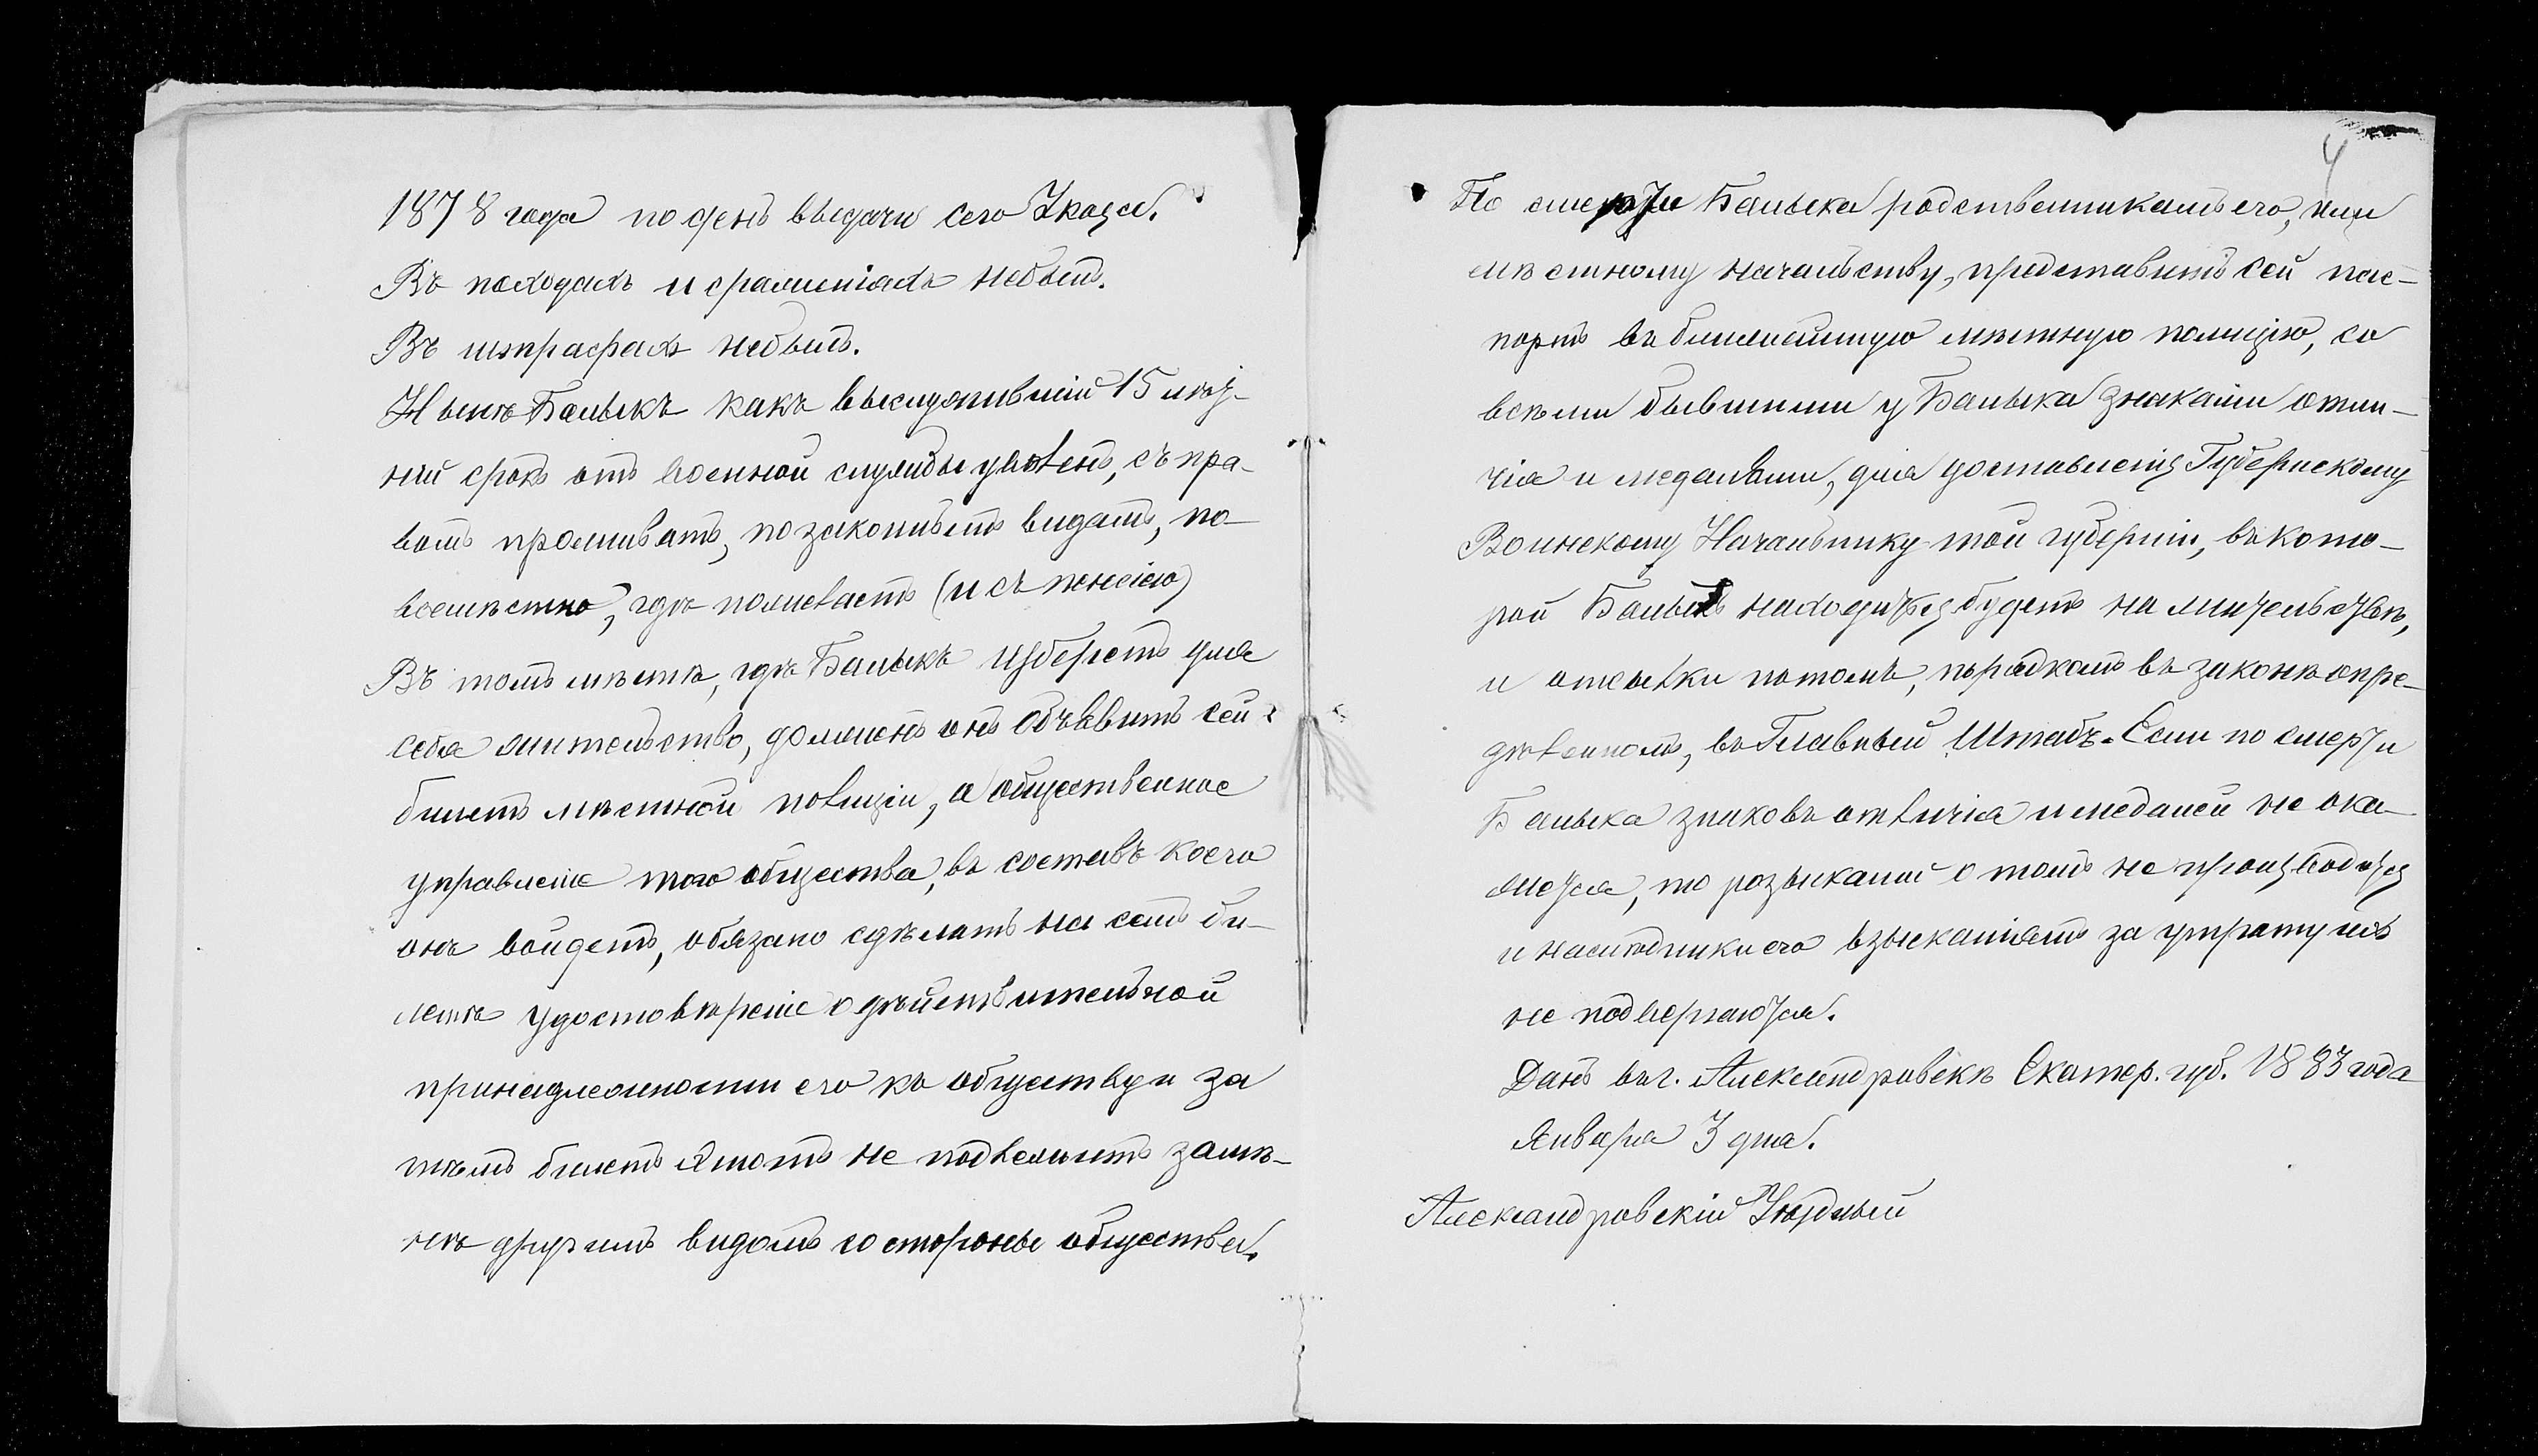 1878 года по день выдачи сего Указа.
Въ походахъ и сраженіяхъ небылъ.
Въ штрафахъ небылъ.
Нынѣ Балыкъ какъ выслужившій 15 лѣт-
ній срокъ отъ военной службы уволенъ, съ пра-
вомъ проживать, по законнымъ видамъ, по-
всемѣстно, гдѣ пожелаетъ (и съ пенсіею)
Въ томъ мѣстѣ, гдѣ Балыкъ изберетъ для
себя жительство, долженъ онъ объявить сей
билетъ мѣстной полиціи, а общественное
управленіе того общества, въ составъ коего
онъ войдетъ, обязано сдѣлать на семъ би-
летѣ удостовѣреніе о дѣйствительной
принадлежности его къ обществу и за
тѣмъ билетъ этотъ не подлежитъ замѣ-
нѣ другимъ видомъ со стороны общества.
4
По смерти Балыка родственникамъ его, или
мѣстному начальству, представить сей пас-
портъ въ ближайшую мѣстную полицію, со
всѣми бывшими у Балыка знаками отли-
чія и медалями, для доставленія Губернскому
Воинскому Начальнику той губерніи, въ кото-
рой Балыкъ находиться будетъ на жительствѣ,
и отсылки потомъ, порядкомъ въ законѣ опре-
дѣленномъ, въ Главный Штабъ. Если по смерти
Балыка знаковъ отличія и медалей не ока-
жется, то розысканій о томъ не производится
и наслѣдники его взысканіямъ за утрату ихъ
не подвергаются.
Данъ въ г. Александровскѣ Екатер. губ. 1883 года
Января 3 дня.
Александровскій Уѣздный